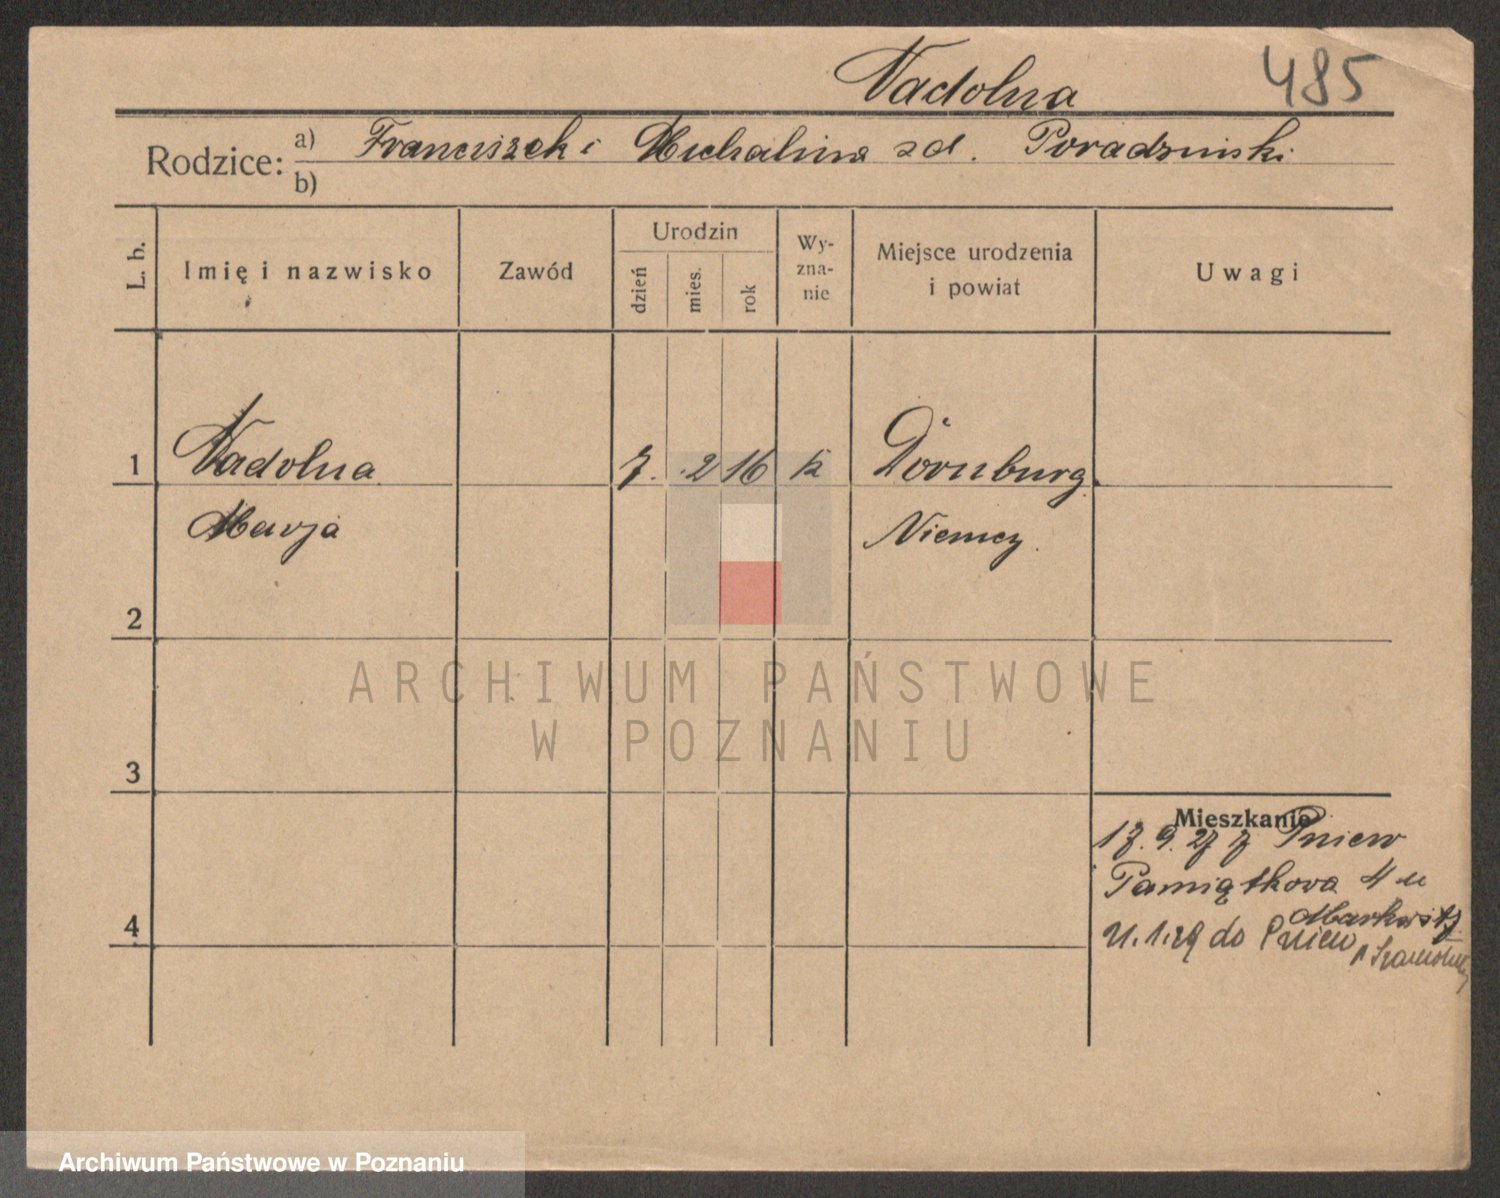 Nadolna 485
Rodzice: a) Franciszek i Michalina zd. Poradzinski
b)
L. b. Imię i nazwisko Zawód Urodzin dzień mies. rok Wy-zna-nie Miejsce urodzenia i powiat Uwagi
1 Nadolna 7. 2 16 k Dornburg.
Marja Niemcy.
2
3
Mieszkanie
17. 9. 27 z Pniew
Pamiątkowa 4 u
4
Markwitz
21.1.29 do Pniew p Szamotuły
ARCHIWUM PAŃSTWOWE
W POZNANIU
Archiwum Państwowe w Poznaniu